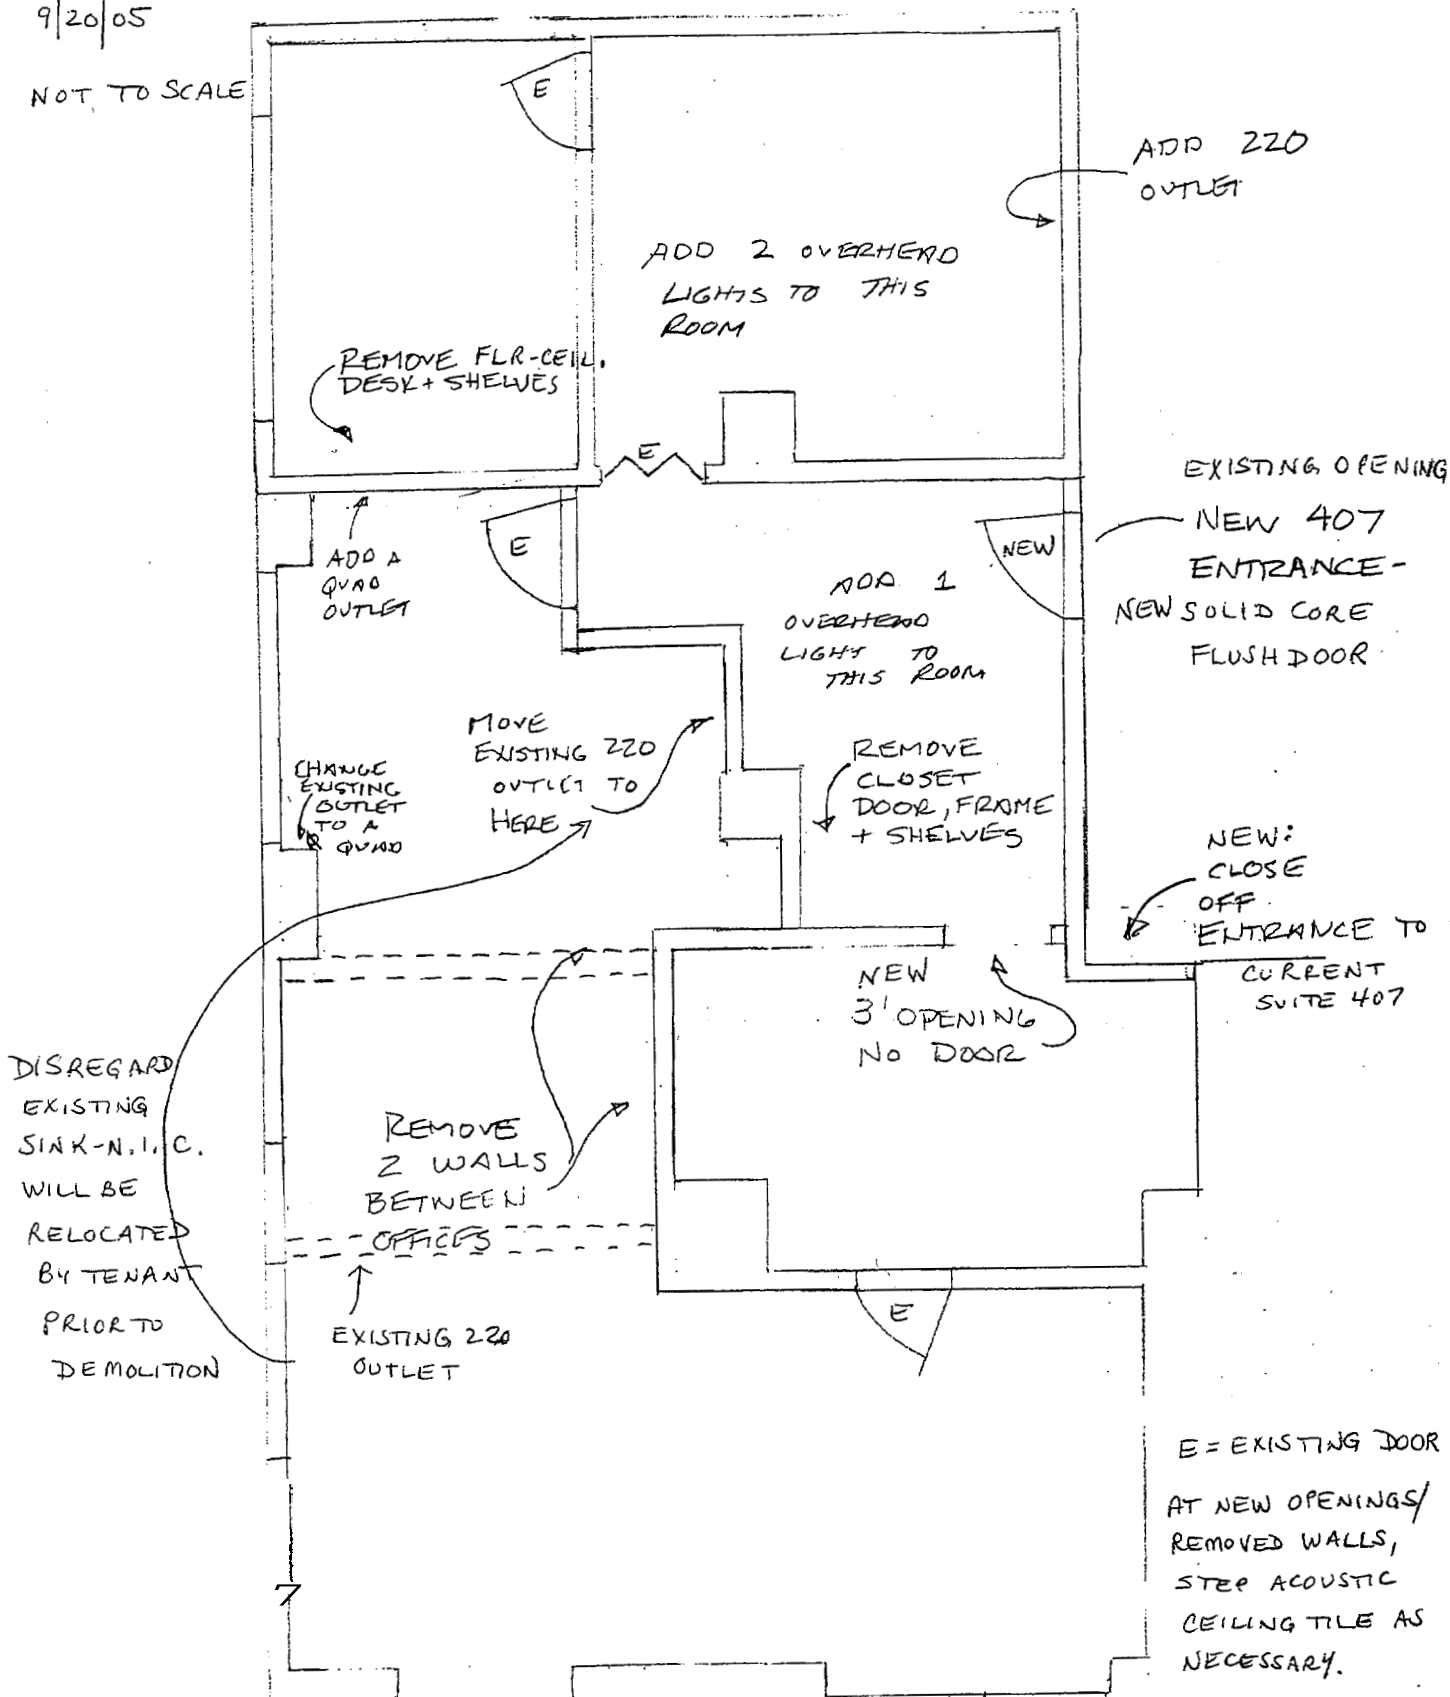 9/20/05
NOT TO SCALE
E
ADD 220
OUTLET
ADD 2 OVERHEAD
LIGHTS TO THIS
ROOM
REMOVE FLR-CEIL.
DESK + SHELVES
E
EXISTING OPENING
NEW 407
ENTRANCE-
NEW SOLID CORE
FLUSH DOOR
E
NEW
ADD A
QUAD
OUTLET
ADD 1
OVERHEAD
LIGHT TO
THIS ROOM
MOVE
EXISTING 220
OUTLET TO
HERE
CHANGE
EXISTING
OUTLET
TO A
QUAD
REMOVE
CLOSET
DOOR, FRAME
+ SHELVES
NEW:
CLOSE
OFF
ENTRANCE TO
CURRENT
SUITE 407
NEW
3' OPENING
NO DOOR
DISREGARD
EXISTING
SINK-N.I.C.
WILL BE
RELOCATED
BY TENANT
PRIOR TO
DEMOLITION
REMOVE
2 WALLS
BETWEEN
OFFICES
EXISTING 220
OUTLET
E
E = EXISTING DOOR
AT NEW OPENINGS/
REMOVED WALLS,
STEP ACOUSTIC
CEILING TILE AS
NECESSARY.
7